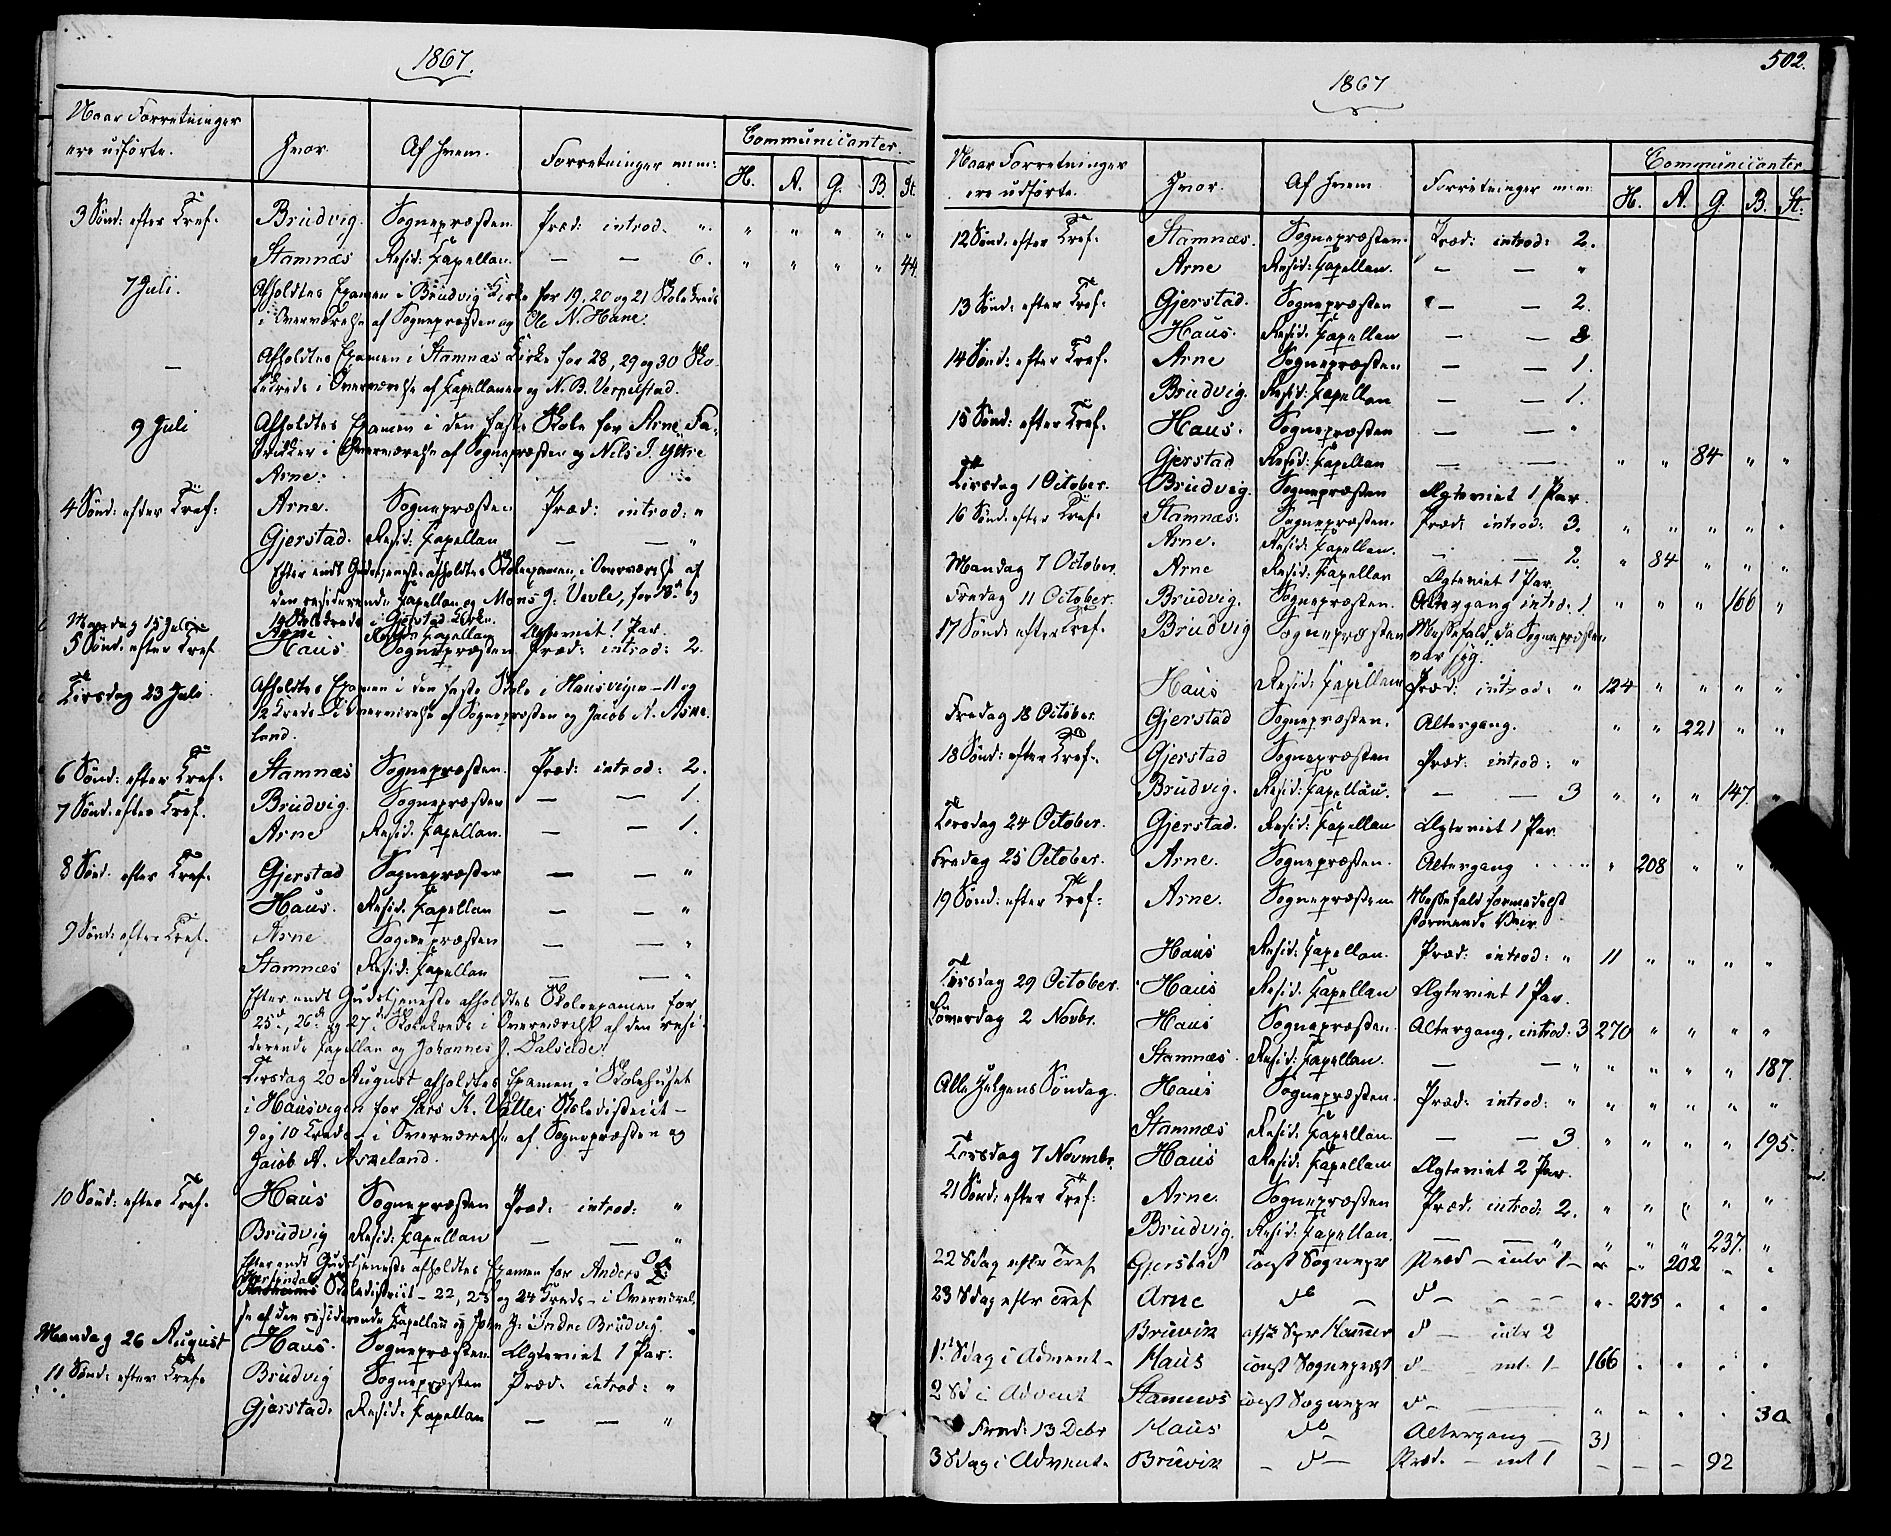 1867.
Naar Forretninger ere udførte. Hvor Af hvem. Forretninger m: m: Communicanter.
H. A. G. B. St.
3 Sønd: efter Tref. Brudvig. Sognepræsten Præd: introd. " " " " " "
Stamnæs Resid: Capellan. — — 6. " " " " 44.
7 Juli. Afholdtes Examen i Brudvig Kirke for 19, 20 og 21 Skolekreds
i Overværelse af Sognepræsten og Ole N. Hane.
— Afholdtes Examen i Stamnæs Kirke for 28, 29 og 30 Sko-
lekreds i Overværelse af Capellanen og N. B. Verpelstad.
9 Juli Afholdtes Examen i den faste Skole for Arne Fa-
brikker i Overværelse af Sognepræsten og Nils J. Ytre
Arne.
4 Sønd: efter Tref: Arne. Sognepræsten Præd: introd: "
Gjerstad. Resid: Capellan — — "
Efter endt Gudstjeneste afholdtes Skoleexamen, i Overværelse af
den residerende Capellan og Mons J. Vevle, for 13de og
14 Skolekreds i Gjerstad Kirke.
Mandag 15 Juli Arne Resid: Capellan Ægteviet 1 Par.
5 Sønd: efter Tref Haus Sognepræsten. Præd: introd: 2.
Tirsdag 23 Juli Afholdtes Examen i den faste Skole i Hausvigen – 11 og
12 Kreds – i Overværelse af Sognepræsten og Jacob A. Arne-
land.
6 Sønd: efter Tref: Stamnæs Sognepræsten. Præd: introd: 2.
7 Sønd: efter Tref. Brudvig. Sognepræsten — — 1.
Arne Resid. Capellan. — — 1.
8 Sønd. efter Tref. Gjerstad Sognepræsten — — "
Haus. Resid. Capellan — — "
9 Sønd: efter Tref. Arne. Sognepræsten — — "
Stamnæs Resid: Capellan — — "
Efter endt Gudstjeneste afholdtes Skoleexamen for
25de, 26de og 27de Skolekreds i Overværelse af den resi-
derende Capellan og Johannes J. Dalseide.
Tirsdag 20 August afholdtes Examen, i Skolehuset
i Hausvigen for Lars K. Valles Skoledistrict –
9 og 10 Kreds – i Overværelse af Sognepræsten og
Jacob A. Arneland.
10 Sønd: efter Tref. Haus Sognepræsten Præd: introd: "
Brudvig Resid: Capellan — — "
Efter endt Gudstjeneste afholdtes Examen for Anders
Skoledistrict – 22, 23 og 24 Kreds – i Overværel-
se af den residerende Capellan og John J. Indre Brudvig.
Mandag 26 August Haus. Sognepræsten Ægteviet 1 Par:
11 Sønd: efter Tref. Brudvig Sognepræsten Præd: introd: "
Gjerstad. Resid. Capellan — — "
502.
1867
Naar Forretninger ere udførte. Hvor. Af hvem Forretninger m: m: Communicanter
H. A. G. B. St:
12 Sønd: efter Tref. Stamnæs. Sognepræsten. Præd: introd: 2.
Arne Resid: Capellan. — — "
13 Sønd: efter Tref. Gjerstad. Sognepræsten — — 2.
Haus. Resid: Capellan — — 2
14 Sønd: efter Tref. Arne Sognepræsten — — 1.
Brudvig. Resid: Capellan — — 1.
15 Sønd: efter Tref. Haus. Sognepræsten — — "
Gjerstad Resid: Capellan — — " " 84 " "
Tirsdag 1 October. Brudvig. Sognepræsten Ægteviet 1 Par.
16 Sønd: efter Tref. Stamnæs. Sognepræsten. Præd: introd: 3. " " " " "
Arne. Resid: Capellan. — — 2. " 84 " " "
Mandag 7 October. Arne Resid: Capellan Ægteviet 1 Par.
Fredag 11 October. Brudvig. Sognepræsten. Altergang introd: 1 " " " 166 "
17 Sønd: efter Tref. Brudvig Sognepræsten Messefald, da Sognepræsten
var syg.
Haus Resid: Capellan Præd: introd: " 124 " " " "
Fredag 18 October. Gjerstad Sognepræsten. Altergang. " " 221 " "
18 Sønd: efter Tref. Gjerstad Sognepræsten Præd: introd: "
Brudvig. Resid: Capellan. — — 3 " " " 147. "
Torsdag 24 October. Gjerstad. Resid: Capellan Ægteviet 1 Par
Fredag 25 October. Arne. Sognepræsten. Altergang " " 208 " " "
19 Sønd: efter Tref: Arne. Sognepræsten Messefald formedelst
stormende Veir.
Haus Resid: Capellan. Præd: introd: " 11 " " " "
Tirsdag 29 October. Haus Resid: Capellan Ægteviet 1 Par.
Løverdag 2 Novbr. Haus Sognepræsten. Altergang, introd. 3 270 " " " "
Stamnæs. Resid: Capellan. — — " " " " " 187.
Alle Helgens Søndag. Haus Sognepræsten. Præd: introd: " " " " " "
Stamnæs Resid: Capellan. — — 3 " " " " 195.
Torsdag 7 Novmbr. Haus Resid: Capellan Ægteviet 2 Par.
21 Sønd: efter Tref: Arne. Sognepræsten Præd: introd: 2. " " " " "
Brudvig. Resid: Capellan. — — " " " " 237. "
22 Sdag efter Tref Gjerstad const Sognepr Præd – intr 1 – " " 202 " "
23 Sdag eftr Tref Arne do — do — — — " 275 " " "
Bruvik afsk Spr Hammer d — intr 2
1ste Sdag i Advent – Haus const Sognepræst d – int. 1 – 166 " " " "
2 Sd i Advent Stamnæs const Sognepr d — " " " " 30
Fred: 13 Debr Haus do Altergang — 31
3 Sdag i Advent. Bruvik – d – Præd. – int 1 – – – 92